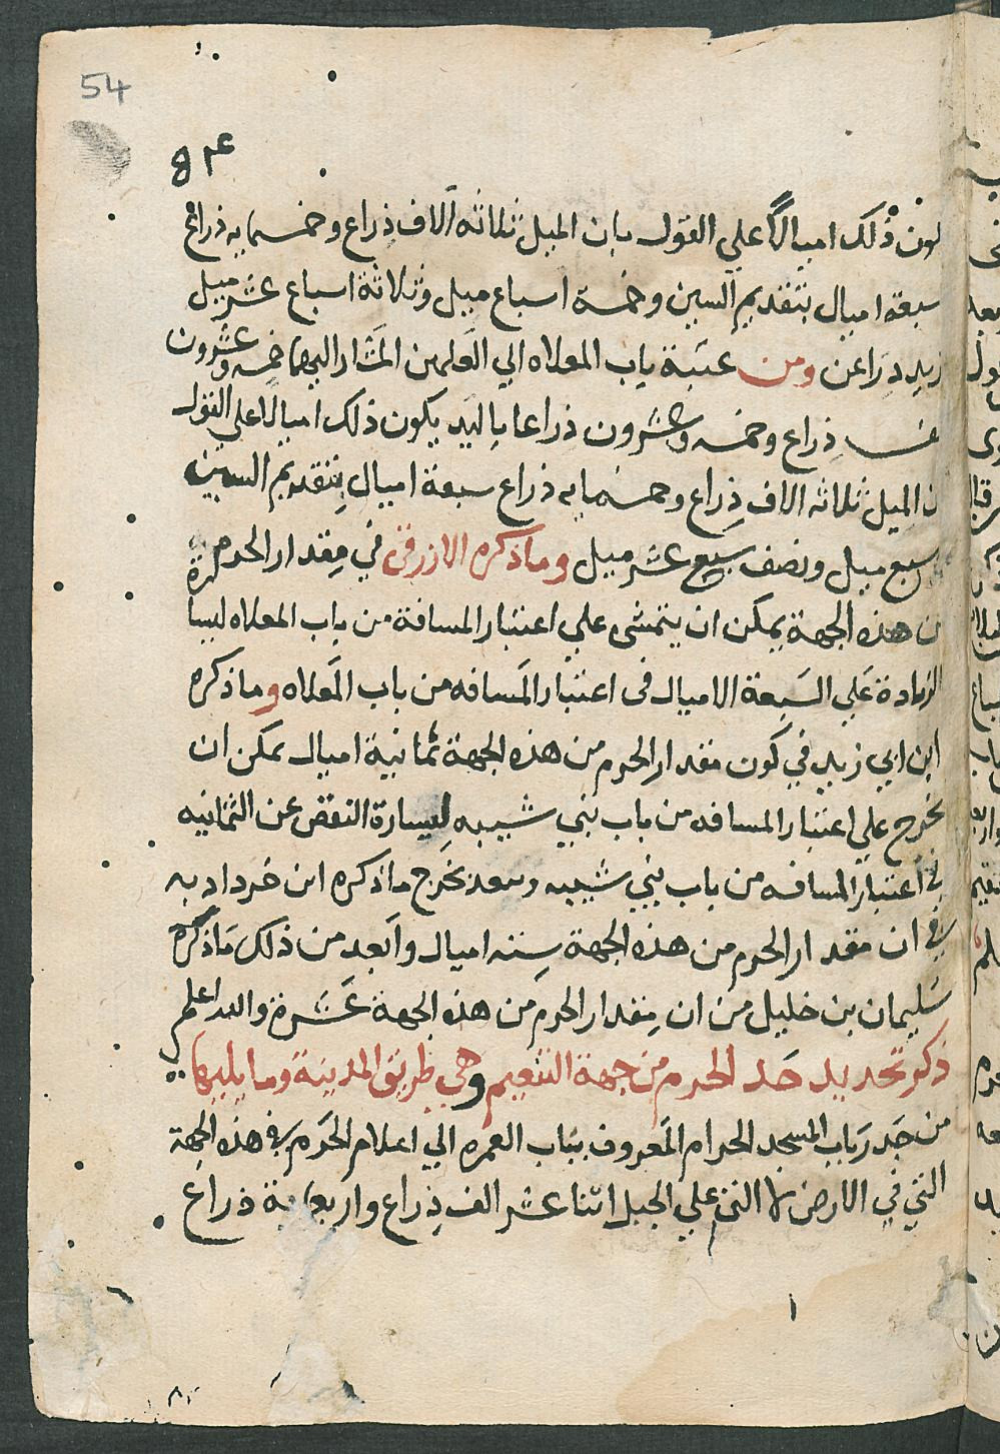 54
٥٤
يكون ذلك اميالا علي القول بان الميل ثلاثه آلاف ذراع وخمسمايه ذراع
سبعة اميال بتقديم السين وخمسة اسباع ميل وثلاثة اسباع عشر ميل
يزيد ذراعين ومن عتبة باب المعلاه الي العلمين المشار اليهما خمسه وعشرون
الف ذراع وخمسه وعشرون ذراعا باليد يكون ذلك اميالا علي القول
ان الميل ثلاثه الاف ذراع وخمسمايه ذراع سبعة اميال بتقديم السين
وسبع ميل ونصف سبع عشر ميل وما ذكره الازرقي في مقدار الحرم
من هذه الجهة يمكن ان يتمشى علي اعتبار المسافة من باب المعلاه ليسارة
الزيادة علي السبعة الاميال في اعتبار المسافه من باب المعلاه وما ذكره
ابن ابي زيد في كون مقدار الحرم من هذه الجهة ثمانية اميال يمكن ان
يخرج علي اعتبار المسافه من باب بني شيبه ليسارة النقص عن الثمانيه
في اعتبار المسافه من باب بني شيبه وببعد يخرج ما ذكره ابن خرداد به
في ان مقدار الحرم من هذه الجهة سته اميال وابعد من ذلك ما ذكره
سليمان بن خليل من ان مقدار الحرم من هذه الجهة عشرة والله اعلم
ذكر تحديد حد الحرم من جهة التنعيم وهي طريق المدينة وما يليها
من جدر باب المسجد الحرام المعروف بباب العمره الي اعلام الحرم في هذه الجهة
التي في الارض لا التي علي الجبل اثنا عشر الف ذراع واربعماية ذراع